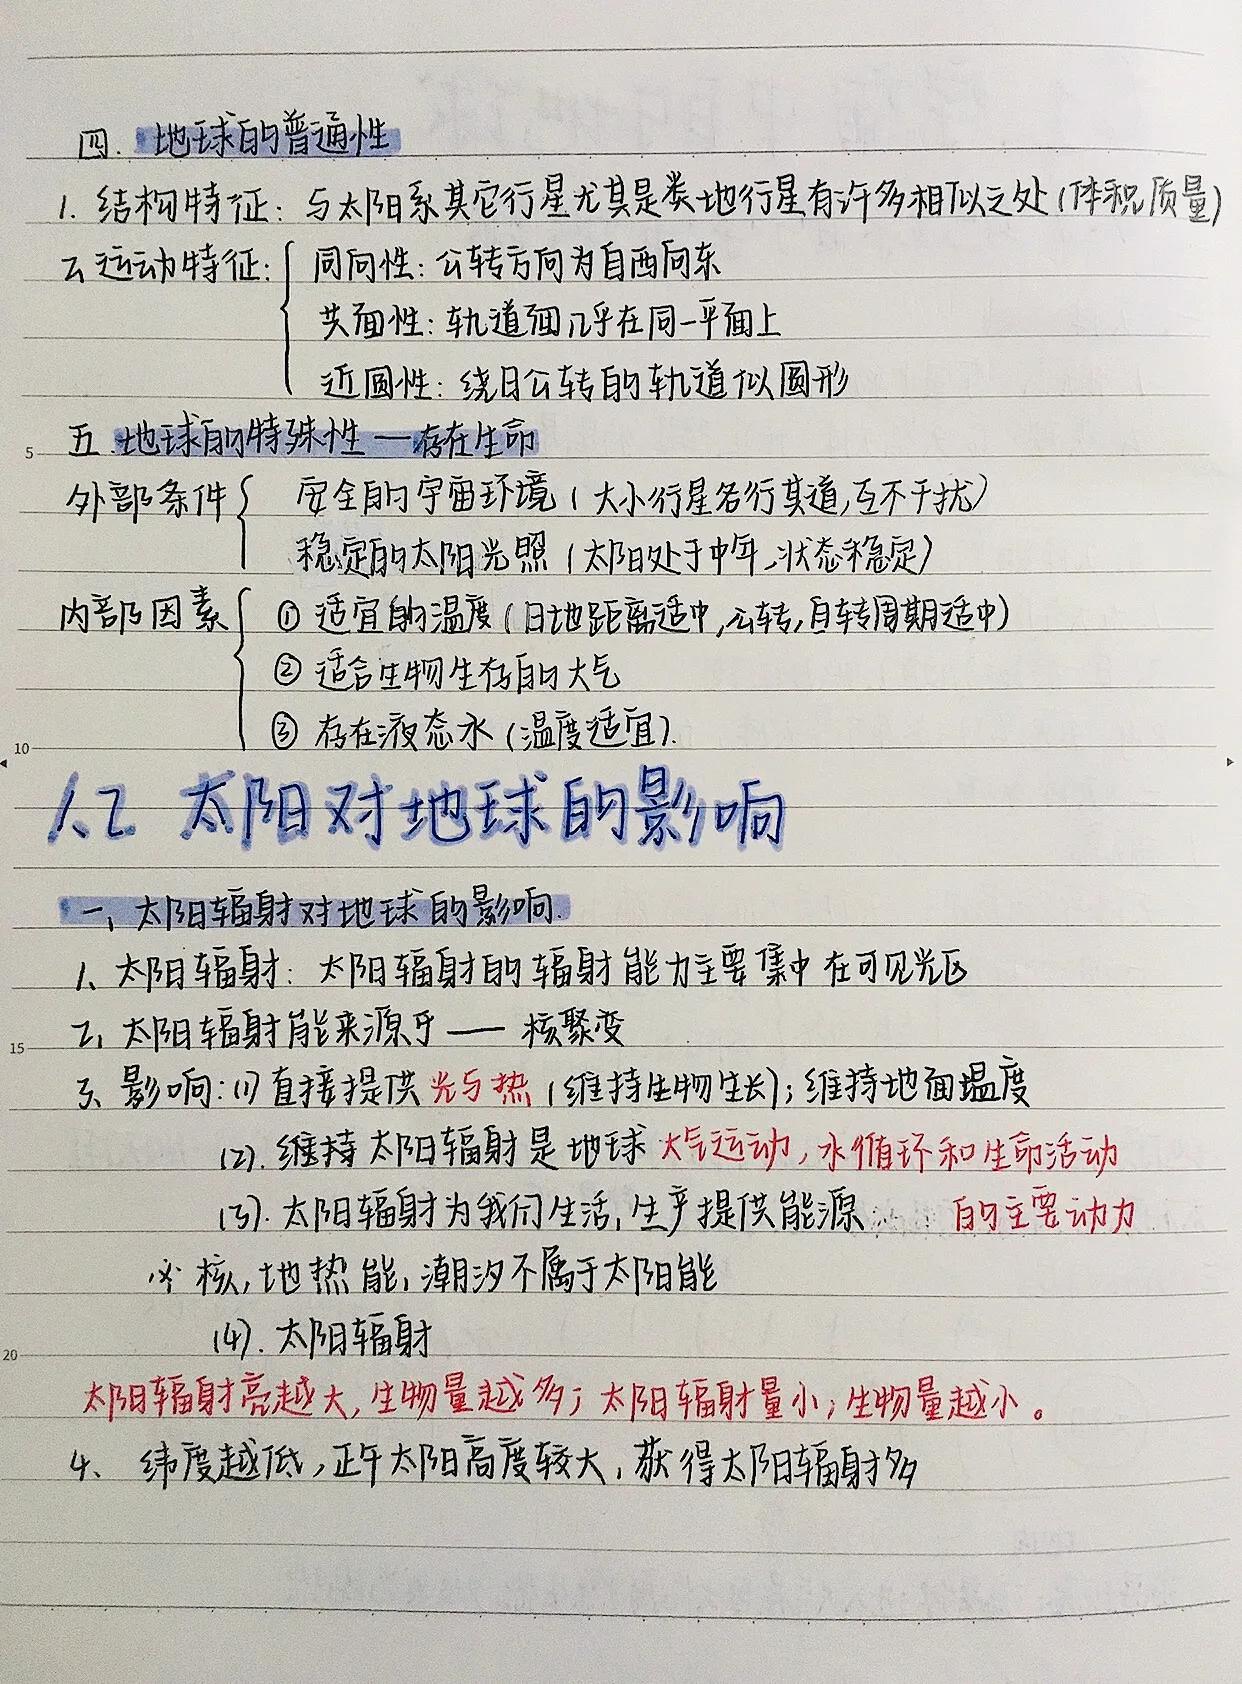 四. 地球的普通性
1. 结构特征: 与太阳系其它行星尤其是类地行星有许多相似之处(体积质量)
2. 运动特征: 同向性: 公转方向为自西向东
共面性: 轨道面几乎在同一平面上
近圆性: 绕日公转的轨道似圆形
五. 地球的特殊性 — 存在生命
外部条件 安全的宇宙环境(大小行星各行其道,互不干扰)
稳定的太阳光照(太阳处于中年,状态稳定)
内部因素 ① 适宜的温度(日地距离适中,公转,自转周期适中)
② 适合生物生存的大气
③ 存在液态水(温度适宜).
1.2 太阳对地球的影响
一、太阳辐射对地球的影响.
1、太阳辐射: 太阳辐射的辐射能力主要集中在可见光区
2、太阳辐射能来源于 —— 核聚变
3、影响: (1) 直接提供光与热(维持生物生长); 维持地面温度
(2). 维持太阳辐射是地球大气运动, 水循环和生命活动
(3). 太阳辐射为我们生活, 生产提供能源 的主要动力
※ 核, 地热能, 潮汐不属于太阳能
(4). 太阳辐射
太阳辐射亮越大, 生物量越多; 太阳辐射量小; 生物量越小。
4、纬度越低, 正午太阳高度较大, 获得太阳辐射多
5
10
15
20